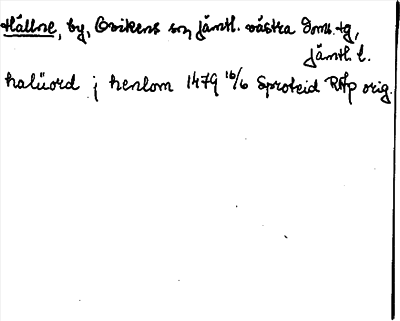 Hållne, by, Ovikens sn, Jämtl. västra doms. tg,
Jämtl. l.
haluord j henlom 1479 16/6 Sproteid RAp orig.